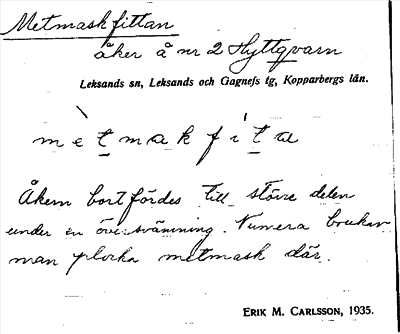 Metmaskfittan
åker å nr 2 Hyttqvarn
Leksands sn, Leksands och Gagnefs tg, Kopparbergs län.
mètmakfìta
Åkern bortfördes till större delen
under en översvämning. Numera brukar
man plocka metmask där.
ERIK M. CARLSSON, 1935.